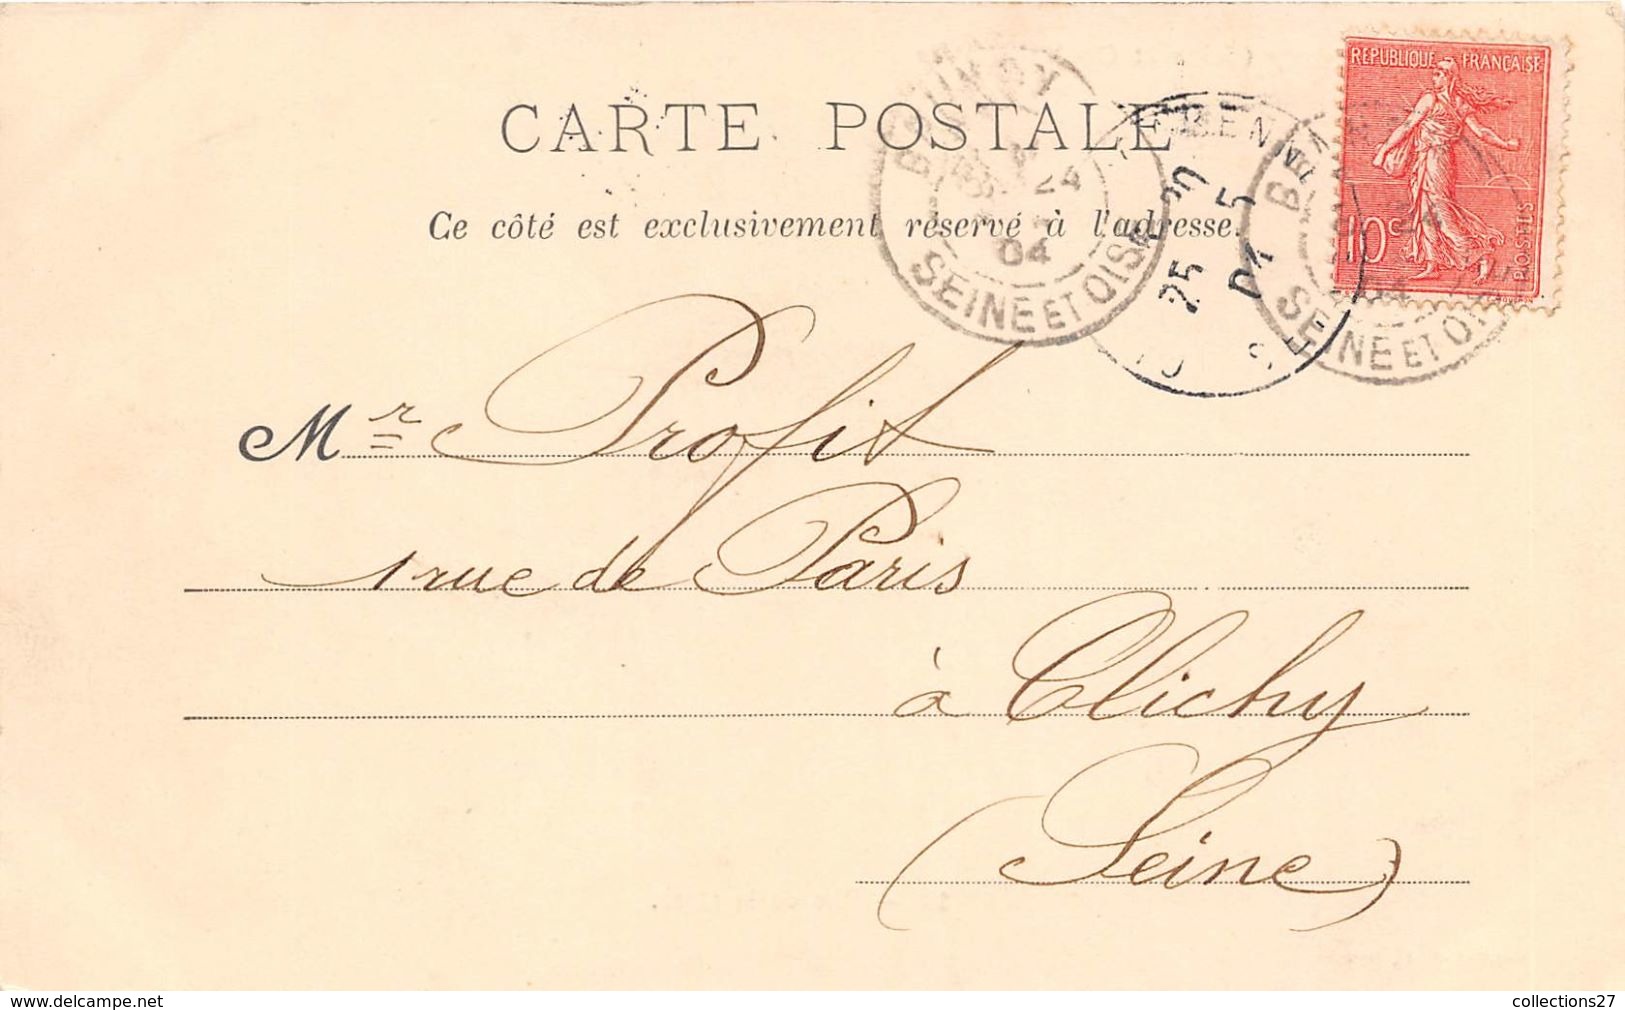 RÉPUBLIQUE FRANÇAISE
CARTE POSTALE
24
04
SEINE ET OISE
25
5
04
SEINE ET OI
10c
POSTES
Ce côté est exclusivement réservé à l'adresse.
Mr Profit
1 rue de Paris
à Clichy
(Seine)
www.delcampe.net
collections27